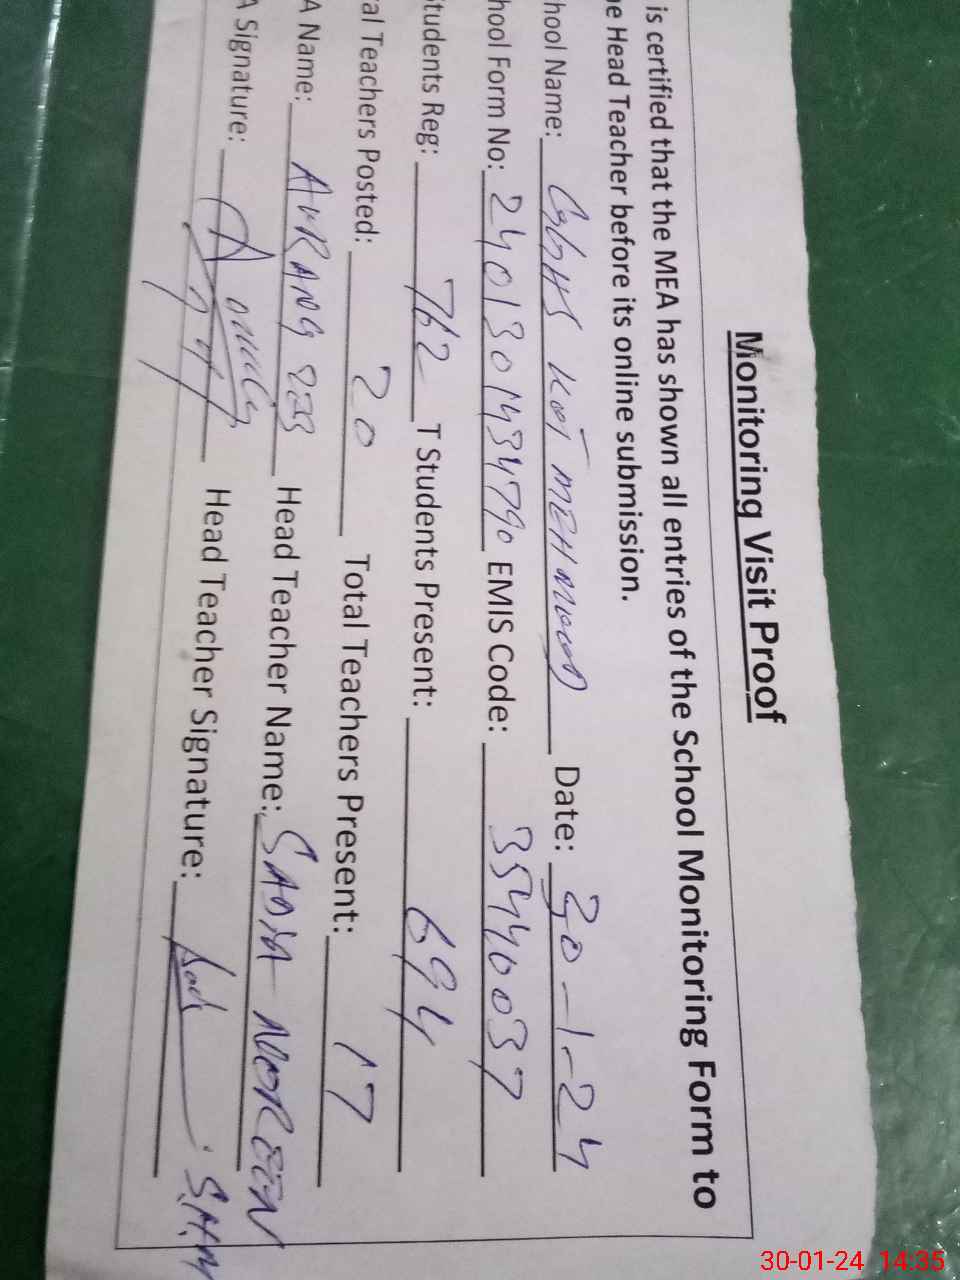 Monitoring Visit Proof
is certified that the MEA has shown all entries of the School Monitoring Form to
e Head Teacher before its online submission.
hool Name: GGHS KOT MEHMOOD Date: 30-1-24
hool Form No: 2401301434790 EMIS Code: 35440037
tudents Reg: 762 T Students Present: 694
al Teachers Posted: 20 Total Teachers Present: 17
A Name: AURANG ZEB Head Teacher Name: SADIA NOREEN
A Signature: Head Teacher Signature: S.H.M
30-01-24 14:35